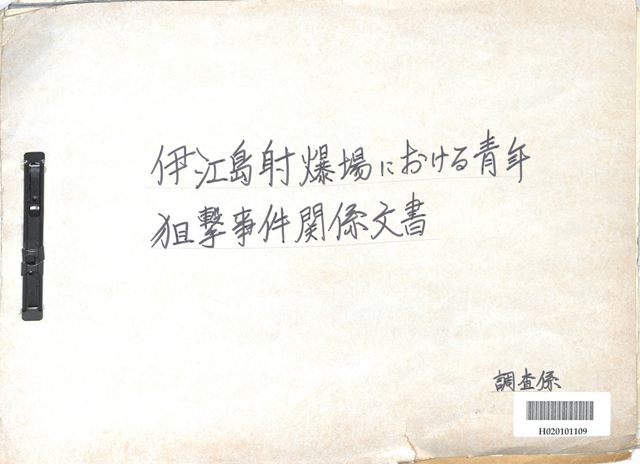 伊江島射爆場における青年
狙撃事件関係文書
調査係
H020101109